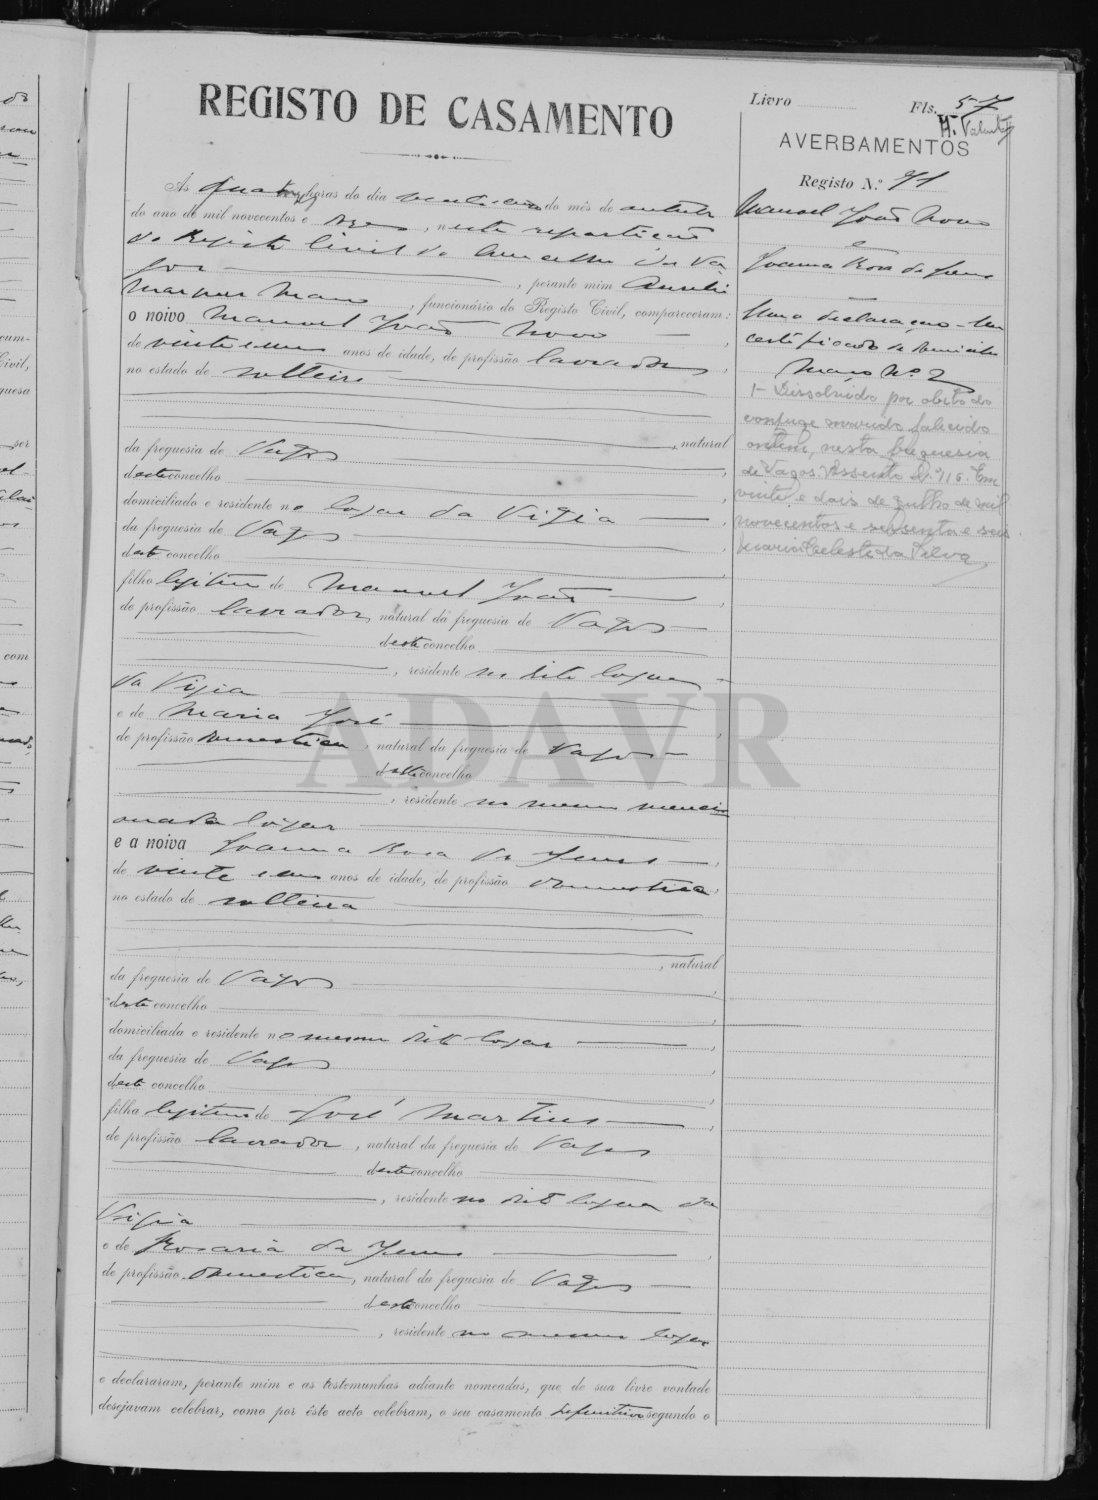 REGISTO DE CASAMENTO
Livro
Fls. 57
H. Valente
AVERBAMENTOS
Registo N.º 91
Manuel João Novo
e
Joanna Rosa de Jesus
Uma declaração - Um
certificado de
Maço Nº 2
1- Dissolvido por obito do
conjuge marido falecido
ontem, nesta freguesia
de Vagos. Assento N.º 116. Em
vinte e dois de Julho de mil
novecentos e sessenta e seis
Maria Celeste da Silva
Ás quatro horas do dia do mês de outubro
do ano de mil novecentos e , nesta repartição
do Registo Civil do concelho de Va-
gos , perante mim
Marques Mano , funcionário do Registo Civil, compareceram:
o noivo Manuel João Novo ,
de vinte e um anos de idade, de profissão lavrador ,
no estado de solteiro
, natural
da freguesia de Vagos
deste concelho ,
domiciliado e residente no lugar da Vigia ,
da freguesia de Vagos
deste concelho ,
filho legitimo de Manuel João ,
de profissão lavrador, natural da freguesia de Vagos
deste concelho
, residente no dito lugar
da Vigia ,
e de Maria José
de profissão domestica, natural da freguesia de Vagos
deste concelho
, residente no mesmo menci-
onado lugar
e a noiva Joanna Rosa de Jesus ,
de vinte e um anos de idade, de profissão domestica,
no estado de solteira
, natural
da freguesia de Vagos ,
deste concelho ,
domiciliada e residente no mesmo dito lugar ,
da freguesia de Vagos
deste concelho ,
filha legitima de José Martins ,
de profissão lavrador, natural da freguesia de Vagos
deste concelho
, residente no dito lugar da
Vigia
e de Rosaria de Jesus ,
de profissão domestica, natural da freguesia de Vagos
deste concelho
, residente no mesmo lugar
e declararam, perante mim e as testemunhas adiante nomeadas, que de sua livre vontade
desejavam celebrar, como por êste acto celebram, o seu casamento definitivo segundo o
ADAVR